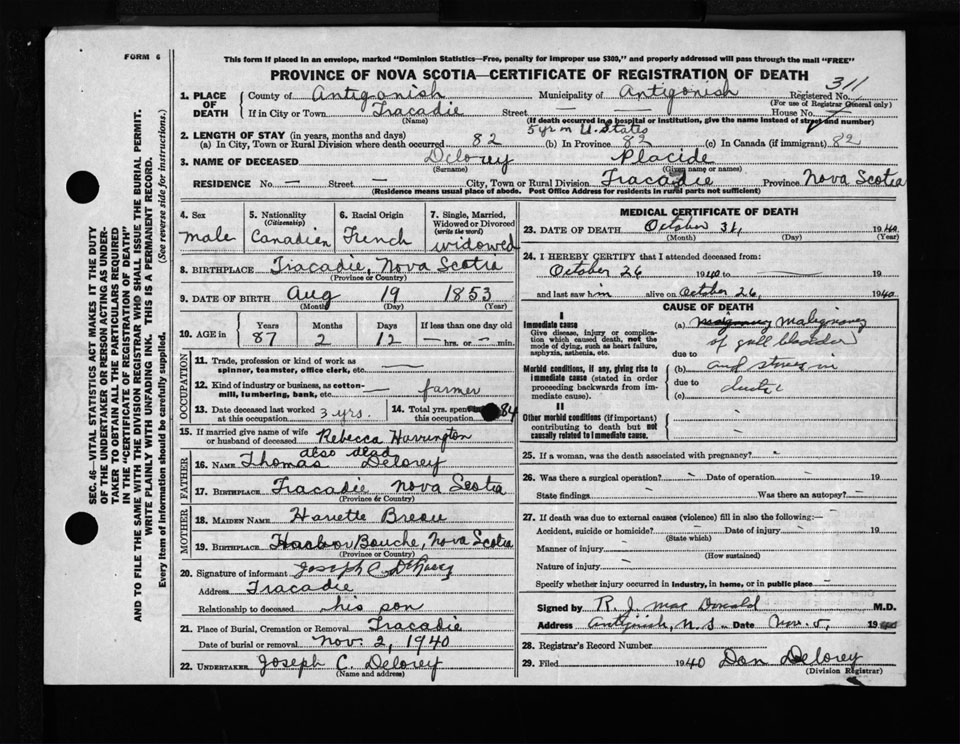 FORM 6
This form if placed in an envelope, marked "Dominion Statistics—Free, penalty for improper use $300," and properly addressed will pass through the mail "FREE"
PROVINCE OF NOVA SCOTIA—CERTIFICATE OF REGISTRATION OF DEATH
311
1. PLACE OF DEATH County of Antigonish Municipality of Antigonish Registered No.
(For use of Registrar General only)
If in City or Town Tracadie Street — House No.
(Name) (If death occurred in a hospital or institution, give the name instead of street and number)
2. LENGTH OF STAY (in years, months and days) 5 yr in U. States
(a) In City, Town or Rural Division where death occurred 82 (b) In Province 82 (c) In Canada (if immigrant) 82
3. NAME OF DECEASED Delorey Placide
(Surname) (Given name or names)
RESIDENCE No. — Street — City, Town or Rural Division Tracadie Province Nova Scotia
(Residence means usual place of abode. Post Office Address for residents in rural parts not sufficient)
4. Sex male
5. Nationality (Citizenship) Canadien
6. Racial Origin French
7. Single, Married, Widowed or Divorced (write the word) widowed
8. BIRTHPLACE Tracadie, Nova Scotia
(Province or Country)
9. DATE OF BIRTH Aug 19 1853
(Month) (Day) (Year)
10. AGE in Years 87 Months 2 Days 12 If less than one day old — hrs. or — min.
OCCUPATION
11. Trade, profession or kind of work as spinner, teamster, office clerk, etc. —
12. Kind of industry or business, as cotton-mill, lumbering, bank, etc. farmer
13. Date deceased last worked at this occupation 3 yrs.
14. Total yrs. spent in this occupation 84
15. If married give name of wife or husband of deceased Rebecca Harrington
also dead
FATHER
16. NAME Thomas Delorey
17. BIRTHPLACE Tracadie Nova Scotia
(Province or Country)
MOTHER
18. MAIDEN NAME Hariette Breau
19. BIRTHPLACE Harbor Bouche, Nova Scotia
(Province or Country)
20. Signature of informant Joseph C. Delorey
Address Tracadie
Relationship to deceased his son
21. Place of Burial, Cremation or Removal Tracadie
Date of burial or removal Nov. 2, 1940
22. UNDERTAKER Joseph C. Delorey
(Name and address)
MEDICAL CERTIFICATE OF DEATH
23. DATE OF DEATH October 31, 1940
(Month) (Day) (Year)
24. I HEREBY CERTIFY that I attended deceased from:
October 26 1940 to — 19
and last saw him alive on October 26, 1940
CAUSE OF DEATH
I
Immediate cause
Give disease, injury or complication which caused death, not the mode of dying, such as heart failure, asphyxia, asthenia, etc.
(a) malignancy
of gall bladder
due to
Morbid conditions, if any, giving rise to immediate cause (stated in order proceeding backwards from immediate cause).
(b) and stones in
due to
(c)
II
Other morbid conditions (if important) contributing to death but not causally related to immediate cause.
25. If a woman, was the death associated with pregnancy?
26. Was there a surgical operation? Date of operation 19
State findings Was there an autopsy?
27. If death was due to external causes (violence) fill in also the following:—
Accident, suicide or homicide? Date of injury 19
(State which)
Manner of injury
(How sustained)
Nature of injury
Specify whether injury occurred in industry, in home, or in public place
Signed by R. J. Mac Donald M.D.
Address Antigonish, N. S. Date Nov. 1940
28. Registrar's Record Number
29. Filed 1940 Don Delorey
(Division Registrar)
SEC. 46—VITAL STATISTICS ACT MAKES IT THE DUTY
OF THE UNDERTAKER OR PERSON ACTING AS UNDER-
TAKER TO OBTAIN ALL THE PARTICULARS REQUIRED
IN THE "CERTIFICATE OF REGISTRATION OF DEATH"
AND TO FILE THE SAME WITH THE DIVISION REGISTRAR WHO SHALL ISSUE THE BURIAL PERMIT.
WRITE PLAINLY WITH UNFADING INK. THIS IS A PERMANENT RECORD.
Every item of information should be carefully supplied. (See reverse side for instructions.)